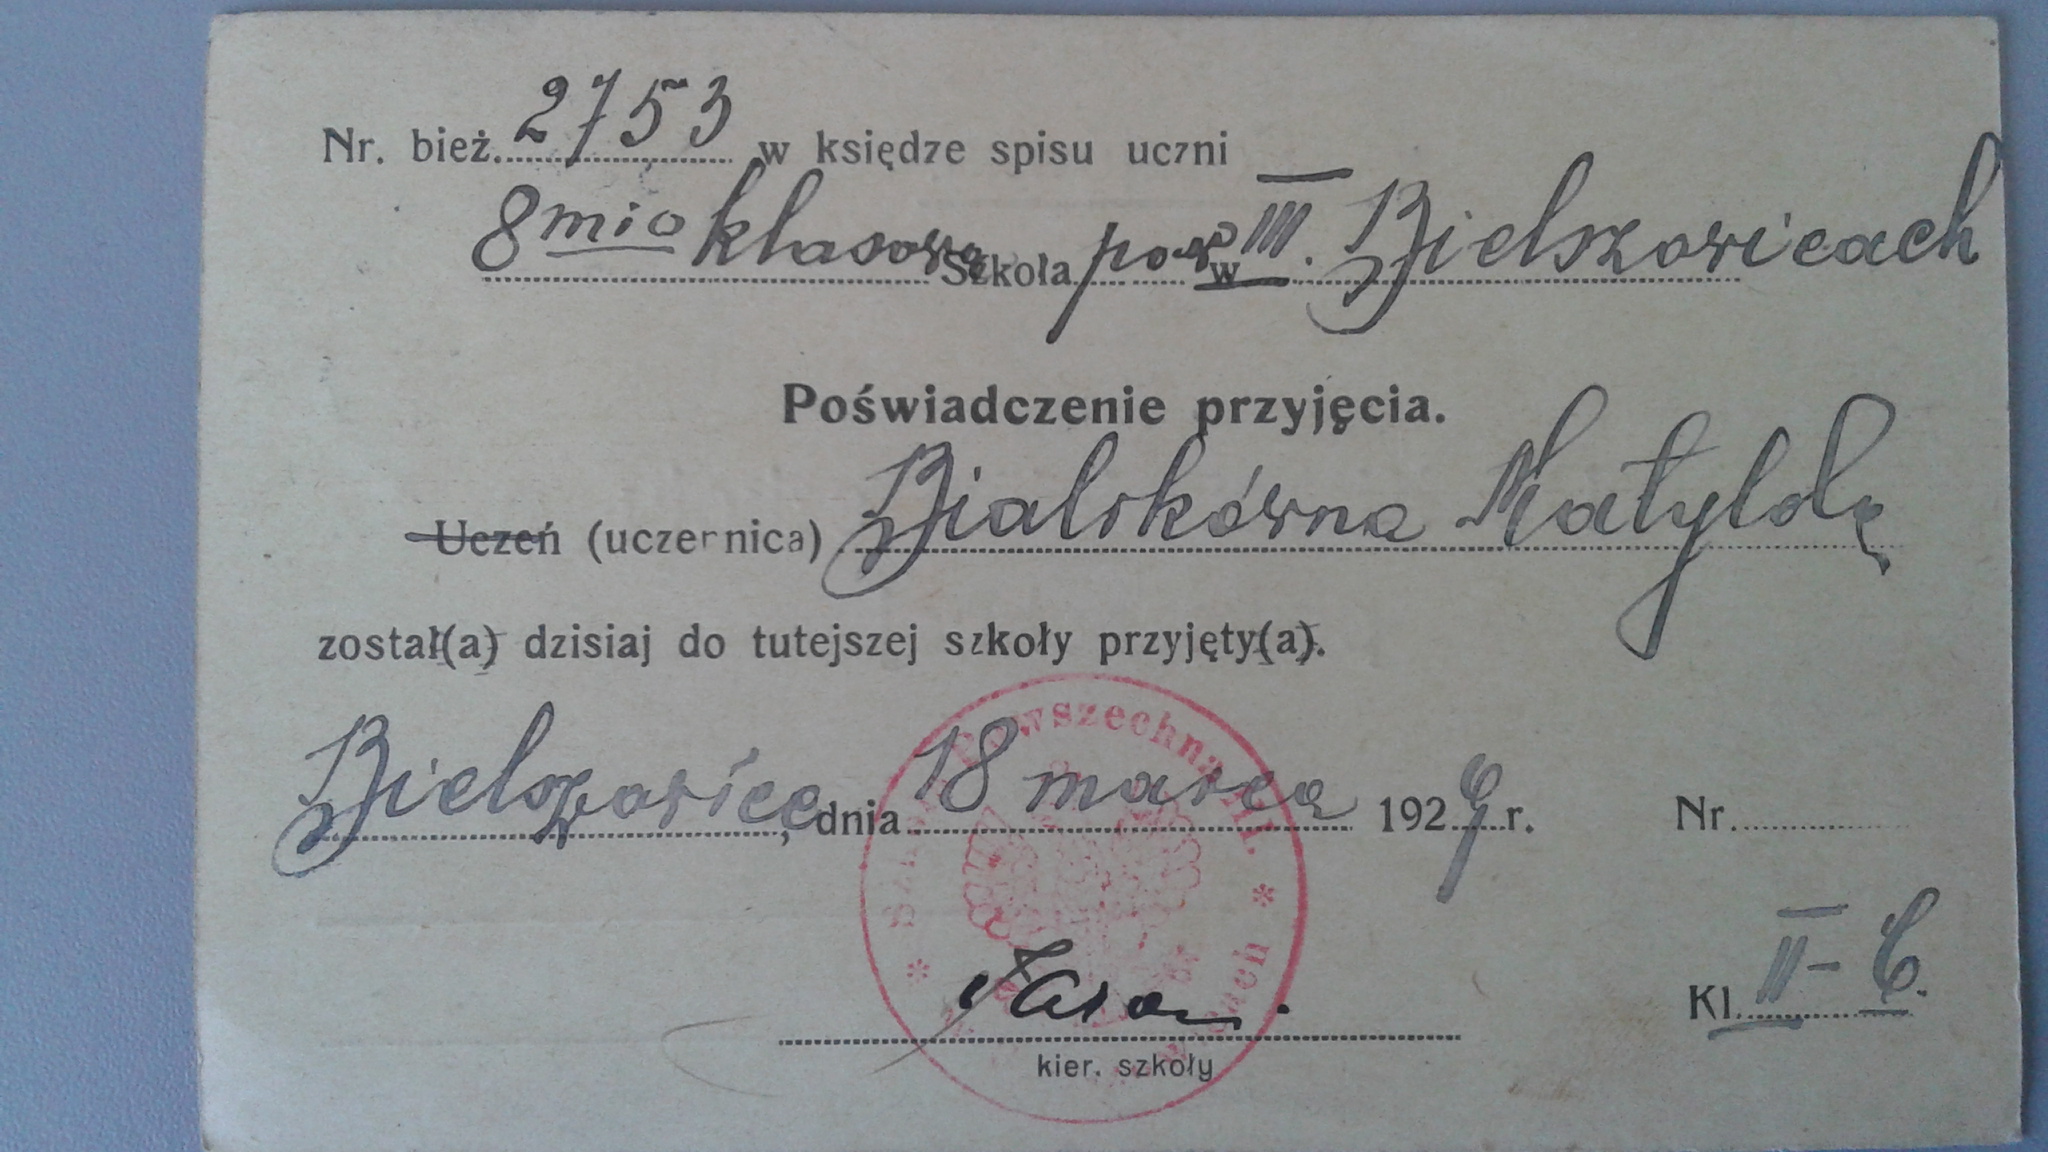 Nr. bież. 2753 w księdze spisu uczni
8mio klasowa Szkoła pow. w III. Bielszowicach
Poświadczenie przyjęcia.
Uczeń (uczernica) Bialikówna Matyldę
został(a) dzisiaj do tutejszej szkoły przyjęty(a).
Bielszowice, dnia 18 marca 1929 r. Nr.
Kl. II - C.
kier. szkoły